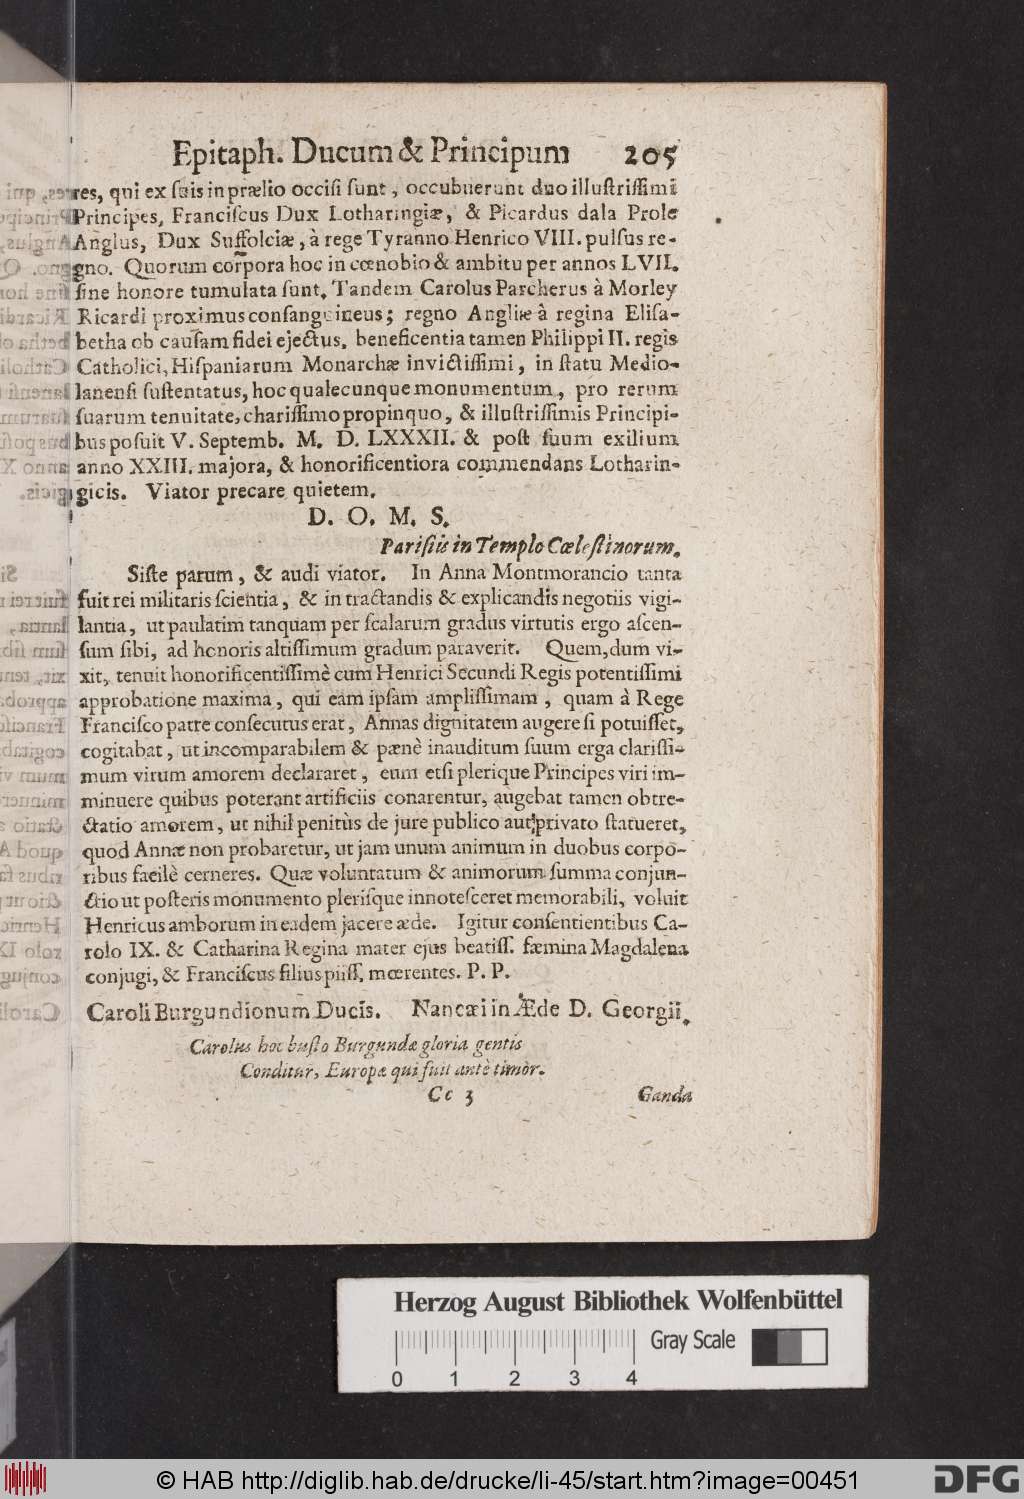 Epitaph. Ducum & Principum 205
res, qui ex suis in prælio occisi sunt, occubuerunt duo illustrissimi
Principes, Franciscus Dux Lotharingiæ, & Picardus dala Prole
Anglus, Dux Suffolciæ, à rege Tyranno Henrico VIII. pulsus re-
gno. Quorum corpora hoc in cœnobio & ambitu per annos LVII.
sine honore tumulata sunt. Tandem Carolus Parcherus à Morley
Ricardi proximus consanguineus; regno Angliæ à regina Elisa-
betha ob causam fidei ejectus, beneficentia tamen Philippi II. regis
Catholici, Hispaniarum Monarchæ invictissimi, in statu Medio-
lanensi sustentatus, hoc qualecunque monumentum, pro rerum
suarum tenuitate, charissimo propinquo, & illustrissimis Principi-
bus posuit V. Septemb. M. D. LXXXII. & post suum exilium
anno XXIII. majora, & honorificentiora commendans Lotharin-
gicis. Viator precare quietem.
D. O. M. S.
Parisiis in Templo Cœlestinorum.
Siste parum, & audi viator. In Anna Montmorancio tanta
fuit rei militaris scientia, & in tractandis & explicandis negotiis vigi-
lantia, ut paulatim tanquam per scalarum gradus virtutis ergo ascen-
sum sibi, ad honoris altissimum gradum paraverit. Quem, dum vi-
xit, tenuit honorificentissimè cum Henrici Secundi Regis potentissimi
approbatione maxima, qui eam ipsam amplissimam, quam à Rege
Francisco patre consecutus erat, Annas dignitatem augere si potuisset,
cogitabat, ut incomparabilem & pænè inauditum suum erga clarissi-
mum virum amorem declararet, eum etsi plerique Principes viri im-
minuere quibus poterant artificiis conarentur, augebat tamen obtre-
ctatio amorem, ut nihil penitùs de jure publico aut privato statueret,
quod Annæ non probaretur, ut jam unum animum in duobus corpo-
ribus facilè cerneres. Quæ voluntatum & animorum summa conjun-
ctio ut posteris monumento plerisque innotesceret memorabili, voluit
Henricus amborum in eadem jacere æde. Igitur consentientibus Ca-
rolo IX. & Catharina Regina mater ejus beatiss. fæmina Magdalena
conjugi, & Franciscus filius piiss, mœrentes. P. P.
Caroli Burgundionum Ducis. Nancæi in Æde D. Georgii.
Carolus hoc busto Burgundæ gloria gentis
Conditur, Europæ qui fuit antè timor.
Cc 3 Ganda
Herzog August Bibliothek Wolfenbüttel
Gray Scale
0 1 2 3 4
© HAB http://diglib.hab.de/drucke/li-45/start.htm?image=00451
DFG